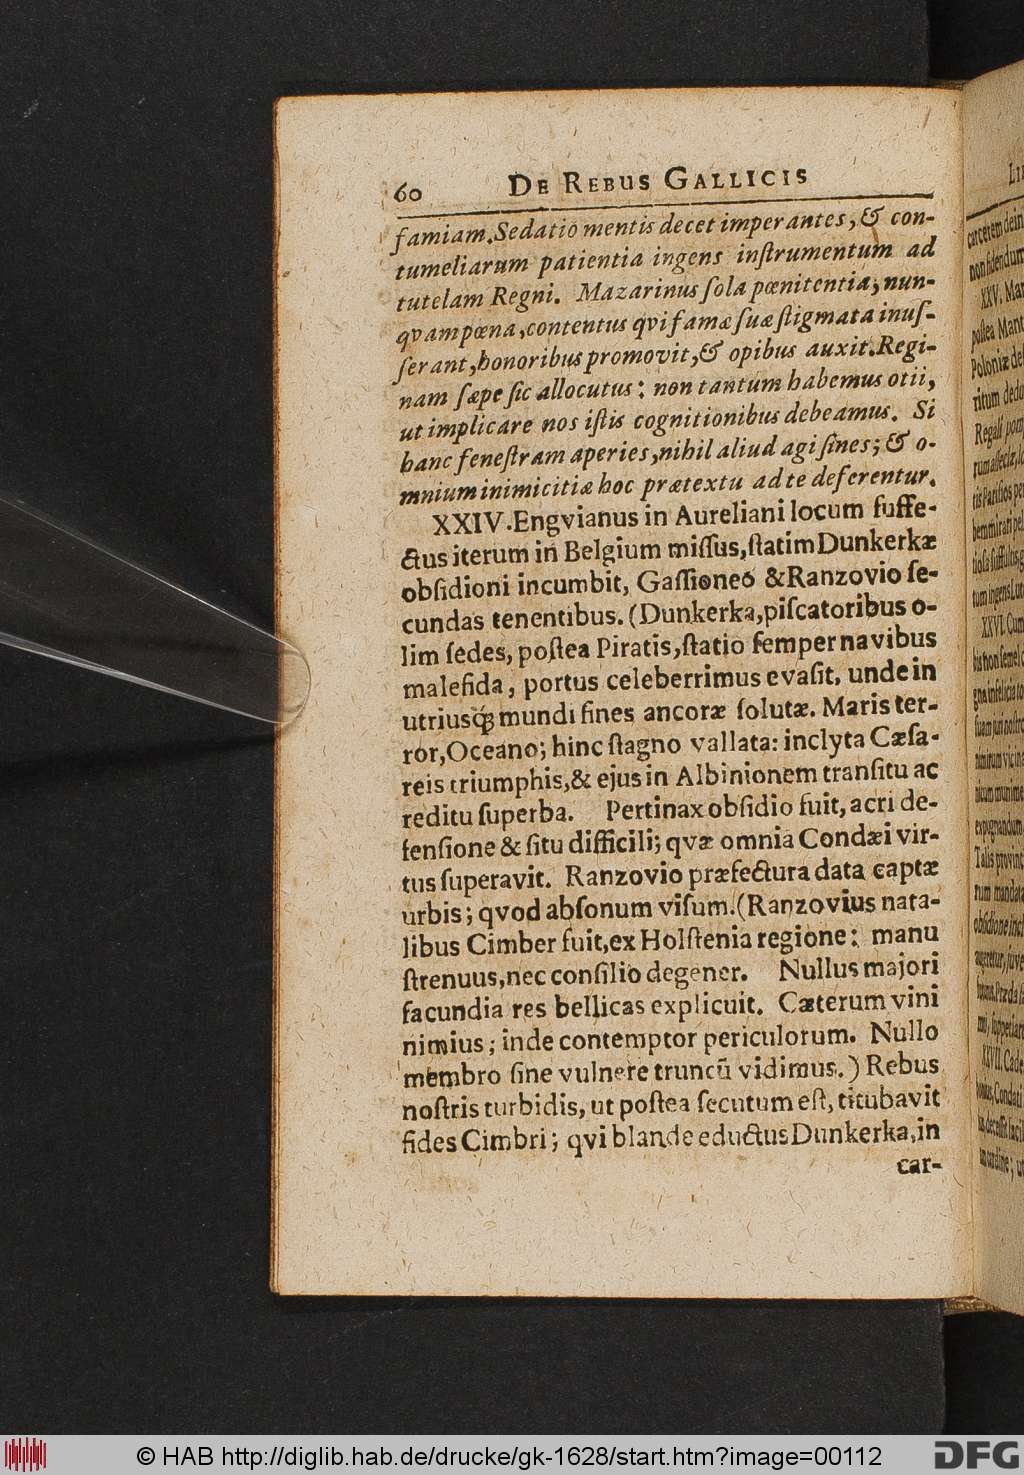 60 DE REBUS GALLICIS
famiam. Sedatio mentis decet imperantes, & con-
tumeliarum patientia ingens inſtrumentum ad
tutelam Regni. Mazarinus ſola pœnitentia, nun-
qvam pœna, contentus qvi famæ ſuæ ſtigmata inuſ-
ſerant, honoribus promovit, & opibus auxit. Regi-
nam ſæpe ſic allocutus: non tantum habemus otii,
ut implicare nos iſtis cognitionibus debeamus. Si
hanc feneſtram aperies, nihil aliud agi ſines; & o-
mnium inimicitiæ hoc prætextu ad te deferentur.
XXIV. Engvianus in Aureliani locum ſuffe-
ctus iterum in Belgium miſſus, ſtatim Dunkerkæ
obſidioni incumbit, Gaſſioneo & Ranzovio ſe-
cundas tenentibus. (Dunkerka, piſcatoribus o-
lim ſedes, poſtea Piratis, ſtatio ſemper navibus
malefida, portus celeberrimus evaſit, unde in
utriusq; mundi fines ancoræ ſolutæ. Maris ter-
ror, Oceano; hinc ſtagno vallata: inclyta Cæſa-
reis triumphis, & ejus in Albinionem tranſitu ac
reditu ſuperba. Pertinax obſidio fuit, acri de-
fenſione & ſitu difficili; qvæ omnia Condæi vir-
tus ſuperavit. Ranzovio præfectura data captæ
urbis; qvod abſonum viſum. (Ranzovius nata-
libus Cimber fuit, ex Holſtenia regione: manu
ſtrenuus, nec conſilio degener. Nullus majori
facundia res bellicas explicuit. Cæterum vini
nimius; inde contemptor periculorum. Nullo
membro ſine vulnere truncū vidimus.) Rebus
noſtris turbidis, ut poſtea ſecutum eſt, titubavit
fides Cimbri; qvi blande eductus Dunkerka, in
car-
carcerem dein
XXV. Mar
poſtea Mant
Poloniæ de
ritum dedu
XXVI. Cum
XXVII. Cade
© HAB http://diglib.hab.de/drucke/gk-1628/start.htm?image=00112
DFG